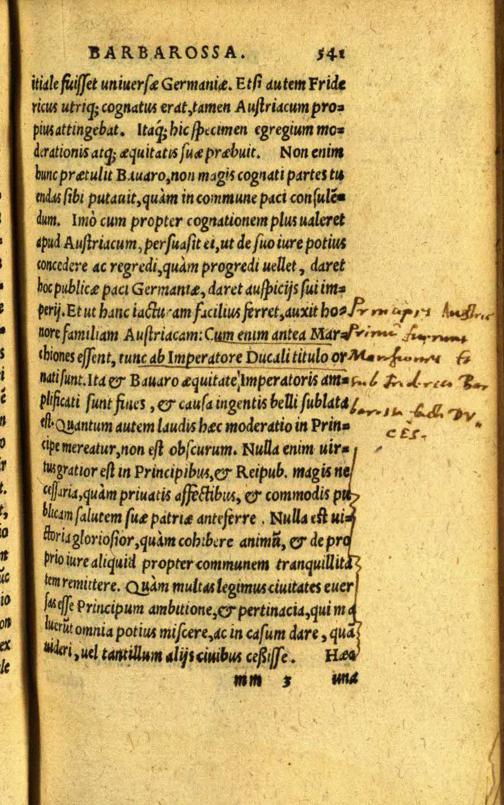 BARBAROSSA. 541
itiale fuisset universæ Germaniæ. Etsi autem Fride
ricus utriq; cognatus erat, tamen Austriacum pro=
pius attingebat. Itaq́; hic specimen egregium mo=
derationis atq; æquitatis suæ præbuit. Non enim
hunc prætulit Bauaro, non magis cognati partes tu
endas sibi putauit, quàm in commune paci consulē=
dum. Imò cum propter cognationem plus ualeret
apud Austriacum, persuasit ei, ut de suo iure potius
concedere ac regredi, quàm progredi uellet, daret
hoc publicæ paci Germaniæ, daret auspicijs sui im=
perij. Et ut hanc iacturam facilius ferret, auxit ho=
nore familiam Austriacam: Cum enim antea Mar=
chiones essent, tunc ab Imperatore Ducali titulo or
nati sunt. Ita & Bauaro æquitate Imperatoris am=
plificati sunt fines, & causa ingentis belli sublata
est. Quantum autem laudis hæc moderatio in Prin=
cipe mereatur, non est obscurum. Nulla enim uir=
tus gratior est in Principibus, & Reipub. magis ne
cessaria, quàm priuatis affectibus, & commodis pu
blicam salutem suæ patriæ anteferre. Nulla est ui=
ctoria gloriosior, quàm cohibere animū, & de pro
prio iure aliquid propter communem tranquillita
tem remittere. Quàm multas legimus ciuitates euer
sas esse Principum ambitione, & pertinacia, qui ma
luerūt omnia potius miscere, ac in casum dare, quà
uideri, uel tantillum alijs ciuibus cessisse. Hæc
mm 3 una
Principes Austriæ
Primū fuerunt
Marchiones
sub Friderico Bar
barossa DV
CES.